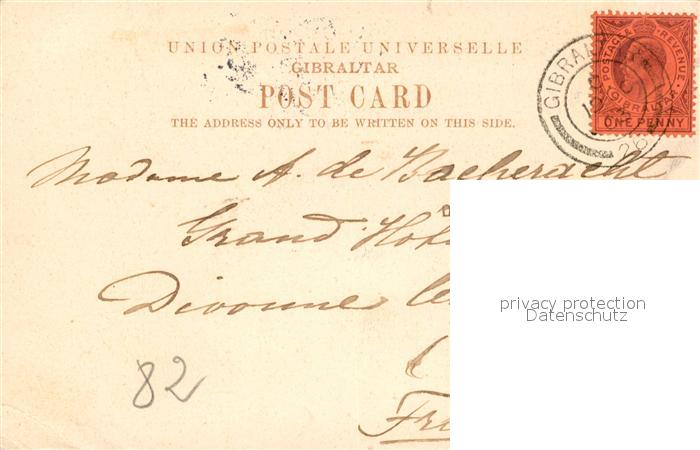 UNION POSTALE UNIVERSELLE
GIBRALTAR
POST CARD
THE ADDRESS ONLY TO BE WRITTEN ON THIS SIDE.
POSTAGE & REVENUE
GIBRALTAR
ONE PENNY
GIBRALTAR
26
Madame A. de Bacheracht
Grand Hôt
Divonne le
Fr
82
privacy protection
Datenschutz